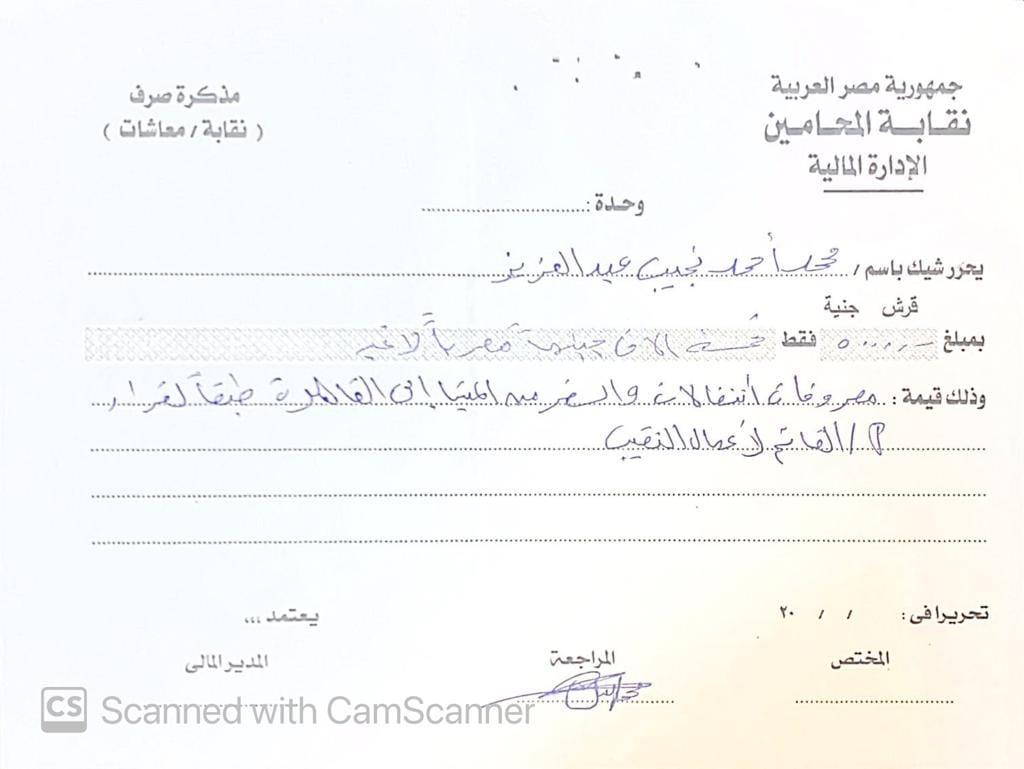 جمهورية مصر العربية
نقابة المحامين
الإدارة المالية
مذكرة صرف
( نقابة / معاشات )
وحدة :
يحرر شيك باسم / محمد أحمد نجيب عبد العزيز
قرش جنية
بمبلغ ٥٠٠٠,٠٠ فقط خمسة الاف جنيهاً مصرياً لا غير
وذلك قيمة : مصروفات انتقالات والسفر من المنيا إلى القاهرة طبقاً لقرار
أ/ القائم لأعمال النقيب
تحريرا فى : / / ٢٠
يعتمد ,,,
المختص
المراجعة
المدير المالى
CS Scanned with CamScanner